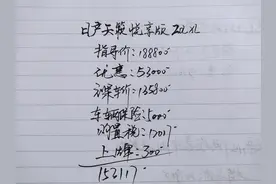 日产天籁悦享版 2.0L XL
指导价:188800
优惠:53000
裸车价:135800
车辆保险:5000
购置税:12017
上牌:300
153117